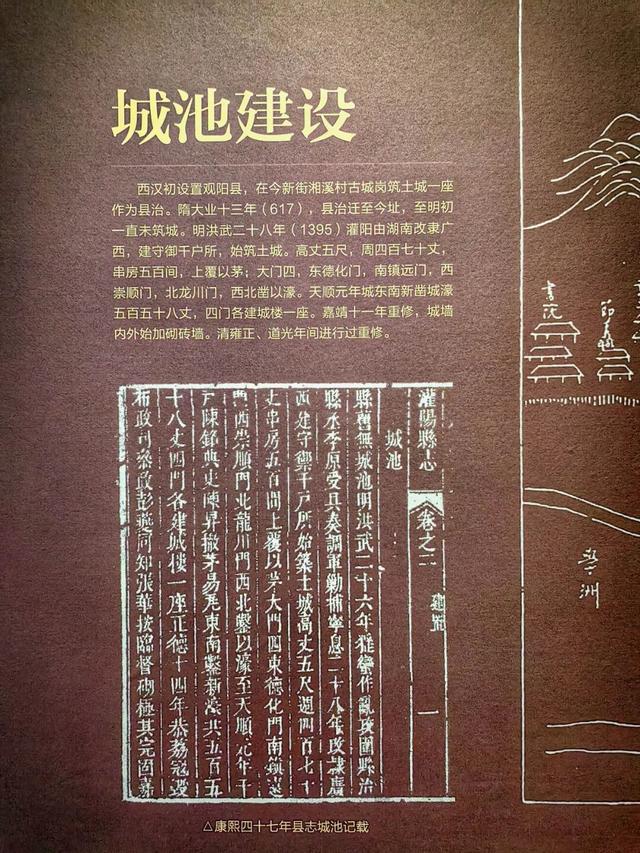 城池建设
西汉初设置观阳县，在今新街湘溪村古城岗筑土城一座
作为县治。隋大业十三年（617），县治迁至今址，至明初
一直未筑城。明洪武二十八年（1395）灌阳由湖南改隶广
西，建守御千户所，始筑土城。高丈五尺，周四百七十丈，
串房五百间，上覆以茅；大门四，东德化门，南镇远门，西
崇顺门，北龙川门，西北凿以濠。天顺元年城东南新凿城濠
五百五十八丈，四门各建城楼一座。嘉靖十一年重修，城墙
内外始加砌砖墙。清雍正、道光年间进行过重修。
灌陽縣志
卷之二
建置
一
城池
縣舊無城池明洪武二十六年猺蠻作亂攻圍縣治
縣丞李原受具奏調軍勦捕寧息二十八年改隷廣
西建守禦千戸所始築土城高丈五尺週四百七十
丈串房五百間上覆以茅大門四東德化門南鎮遠
門西崇順門北龍川門西北鑿以濠至天順元年千
戸陳銘典史陳昇撤茅易瓦東南鑿新濠共五百五
十八丈四門各建城楼一座正德十四年恭務寇變
布政司叅政彭夔同知張華按臨督砌極其完固嘉
△康熙四十七年县志城池记载
書院
洲